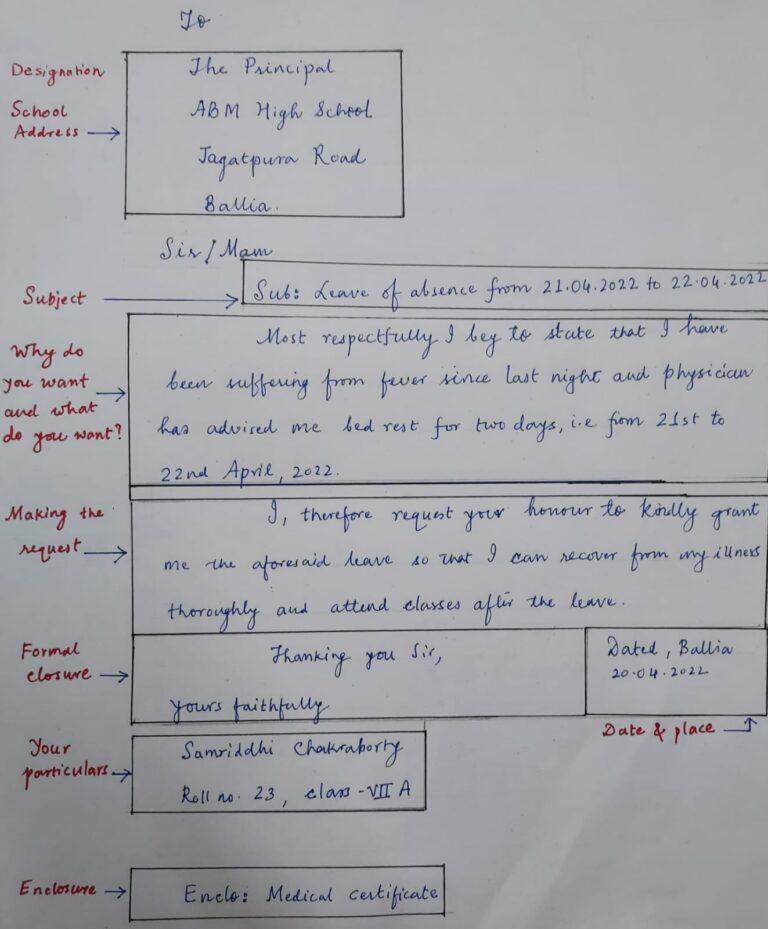 To
Designation
The Principal
School
Address
ABM High School
Jagatpura Road
Ballia.
Sir/Mam
Subject
Sub: Leave of absence from 21.04.2022 to 22.04.2022
Why do
you want
and what
do you want?
Most respectfully I beg to state that I have
been suffering from fever since last night and physician
has advised me bed rest for two days, i.e from 21st to
22nd April, 2022.
Making the
request
I, therefore request your honour to kindly grant
me the aforesaid leave so that I can recover from my illness
thoroughly and attend classes after the leave.
Formal
closure
Thanking you Sir,
Yours faithfully
Dated, Ballia
20.04.2022
Date & place
Your
particulars
Samriddhi Chakraborty
Roll no. 23, class-VII A
Enclosure
Enclo: Medical certificate